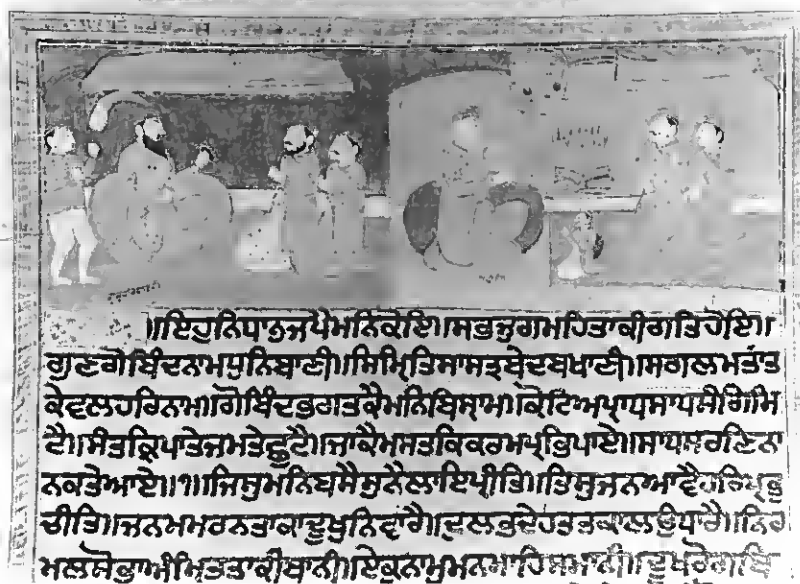 ॥ਇਹੁਨਿਧਾਨਜਪੈਮਨਿਕੋਇ॥ਸਭਜੁਗਮਹਿਤਾਕੀਗਤਿਹੋਇ॥
ਗੁਣਗੋਬਿੰਦਨਾਮਧੁਨਿਬਾਣੀ॥ਸਿਮ੍ਰਿਤਿਸਾਸਤ੍ਰਬੇਦਬਖਾਣੀ॥ਸਗਲਮਤਾਂਤ
ਕੇਵਲਹਰਿਨਾਮ॥ਗੋਬਿੰਦਭਗਤਕੈਮਨਿਬਿਸ੍ਰਾਮ॥ਕੋਟਿਅਪ੍ਰਾਧਸਾਧਸੰਗਿਮਿ
ਟੈ॥ਸੰਤਕ੍ਰਿਪਾਤੇਜਮਤੇਛੁਟੈ॥ਜਾਕੈਮਸਤਕਿਕਰਮਪ੍ਰਭਿਪਾਏ॥ਸਾਧਸਰਣਿਨਾ
ਨਕਤੇਆਏ॥੧॥ਜਿਸੁਮਨਿਬਸੈਸੁਨੈਲਾਇਪ੍ਰੀਤਿ॥ਤਿਸੁਜਨਆਵੈਹਰਿਪ੍ਰਭੁ
ਚੀਤਿ॥ਜਨਮਮਰਨਤਾਕਾਦੂਖੁਨਿਵਾਰੈ॥ਦੁਲਭਦੇਹਤਤਕਾਲਉਧਾਰੈ॥ਨਿਰ
ਮਲਸੋਭਾਅੰਮ੍ਰਿਤਤਾਕੀਬਾਨੀ॥ਏਕੁਨਾਮੁਮਨਮਾਹਿਸਮਾਨੀ॥ਦੂਖਰੋਗਬਿ